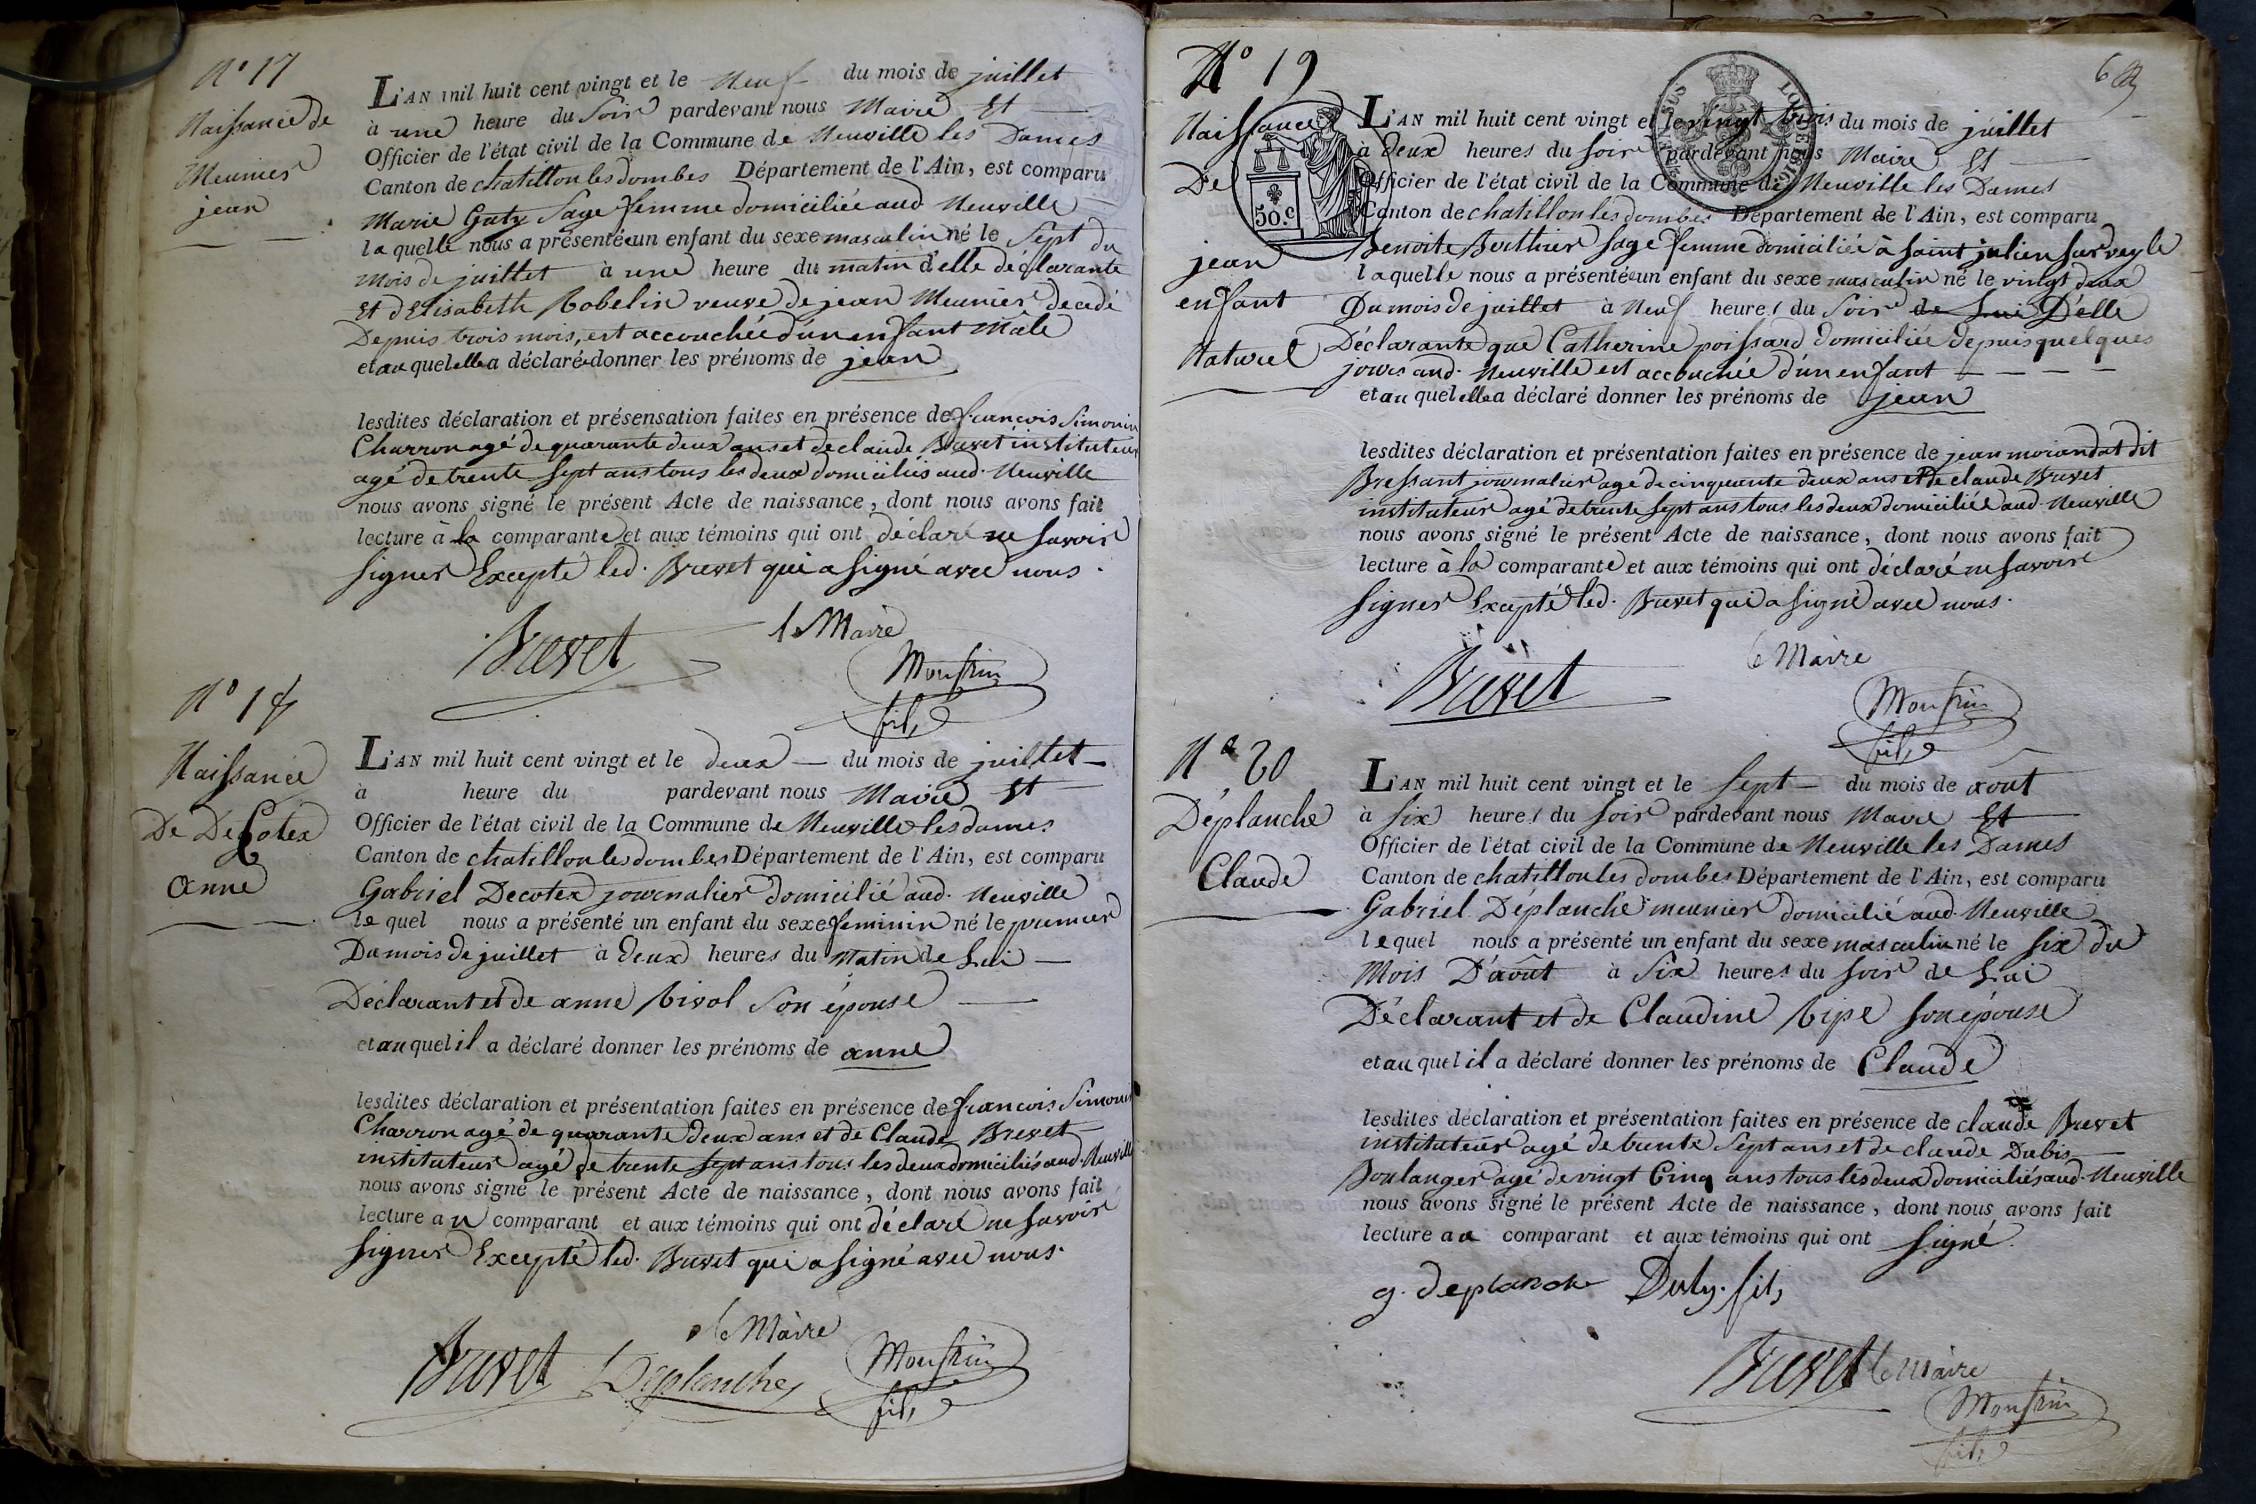 N° 17
Naissance de
Meunier
jean
L'AN mil huit cent vingt et le Neuf du mois de juillet
à une heure du Soir pardevant nous Maire Et
Officier de l'état civil de la Commune de Neuville les Dames
Canton de chatillon les dombes Département de l'Ain, est comparu
Marie Sage femme domiciliée aud Neuville
laquelle nous a présenté un enfant du sexe masculin né le Sept du
mois de juillet à une heure du matin d'elle déclarante
Et d'Elisabeth Robelin veuve de jean Meunier decedé
Depuis trois mois, est accouchée d'un enfant Mâle
et auquel elle a déclaré donner les prénoms de jean
lesdites déclaration et présensation faites en présence de francois Simonin
Charron agé de quarante deux ans et de claude Brevet instituteur
agé de trente Sept ans tous les deux domiciliés aud. Neuville
nous avons signé le présent Acte de naissance, dont nous avons fait
lecture à la comparante et aux témoins qui ont déclaré ne Savoir
Signer Excepté led. Brevet qui a Signé avec nous.
Brevet le Maire
Monfrin
fils
N° 18
Naissance
De Decotex
anne
L'AN mil huit cent vingt et le deux du mois de juillet
à heure du pardevant nous Maire Et
Officier de l'état civil de la Commune de Neuville les dames
Canton de chatillon les dombes Département de l'Ain, est comparu
Gabriel Decotex journalier domicilié aud. Neuville
lequel nous a présenté un enfant du sexe feminin né le premier
Du mois de juillet à deux heures du Matin de Lui
Déclarant et de anne Rivol Son épouse
et auquel il a déclaré donner les prénoms de anne
lesdites déclaration et présentation faites en présence de francois Simonin
Charron agé de quarante Deux ans et de Claude Brevet
instituteur agé de trente Sept ans tous les deux domiciliés aud. Neuville
nous avons signé le présent Acte de naissance, dont nous avons fait
lecture au comparant et aux témoins qui ont déclaré ne Savoir
Signer Excepté led. Brevet qui a Signé avec nous.
le Maire
Brevet Deplanche Monfrin
fils
6
N° 19
Naissance
De
jean
enfant
Naturel
50.c
L'AN mil huit cent vingt et le vingt trois du mois de juillet
à deux heures du soir pardevant nous Maire Et
Officier de l'état civil de la Commune de Neuville les Dames
Canton de chatillon les dombes Département de l'Ain, est comparu
Benoite Berthier Sage femme domiciliée à Saint julien Sur veyle
laquelle nous a présenté un enfant du sexe masculin né le vingt deux
Du mois de juillet à Neuf heures du Soir de Lui D'elle
Déclarante que Catherine poissard domiciliée depuis quelques
jours aud. Neuville est accouchée d'un enfant
et auquel elle a déclaré donner les prénoms de jean
lesdites déclaration et présentation faites en présence de jean morandat dit
Bressant journalier agé de cinquante deux ans Et de claude Brevet
instituteur agé de trente Sept ans tous les deux domiciliés aud. Neuville
nous avons signé le présent Acte de naissance, dont nous avons fait
lecture à la comparante et aux témoins qui ont déclaré ne Savoir
Signer Excepté led. Brevet qui a Signé avec nous.
Brevet le Maire
Monfrin
fils
N° 20
Déplanche
Claude
L'AN mil huit cent vingt et le Sept du mois de août
à Six heures du Soir pardevant nous Maire Et
Officier de l'état civil de la Commune de Neuville les Dames
Canton de chatillon les dombes Département de l'Ain, est comparu
Gabriel Déplanche meunier domicilié aud. Neuville
lequel nous a présenté un enfant du sexe masculin né le Six du
Mois D'août à Six heures du Soir de Lui
Déclarant et de Claudine Ripe Son épouse
et auquel il a déclaré donner les prénoms de Claude
lesdites déclaration et présentation faites en présence de claude Brevet
instituteur agé de trente Sept ans et de claude Dubis
Boulanger agé de vingt Cinq ans tous les deux domiciliés aud. Neuville
nous avons signé le présent Acte de naissance, dont nous avons fait
lecture au comparant et aux témoins qui ont Signé.
g. deplanche fils
Brevet le Maire
Monfrin
fils